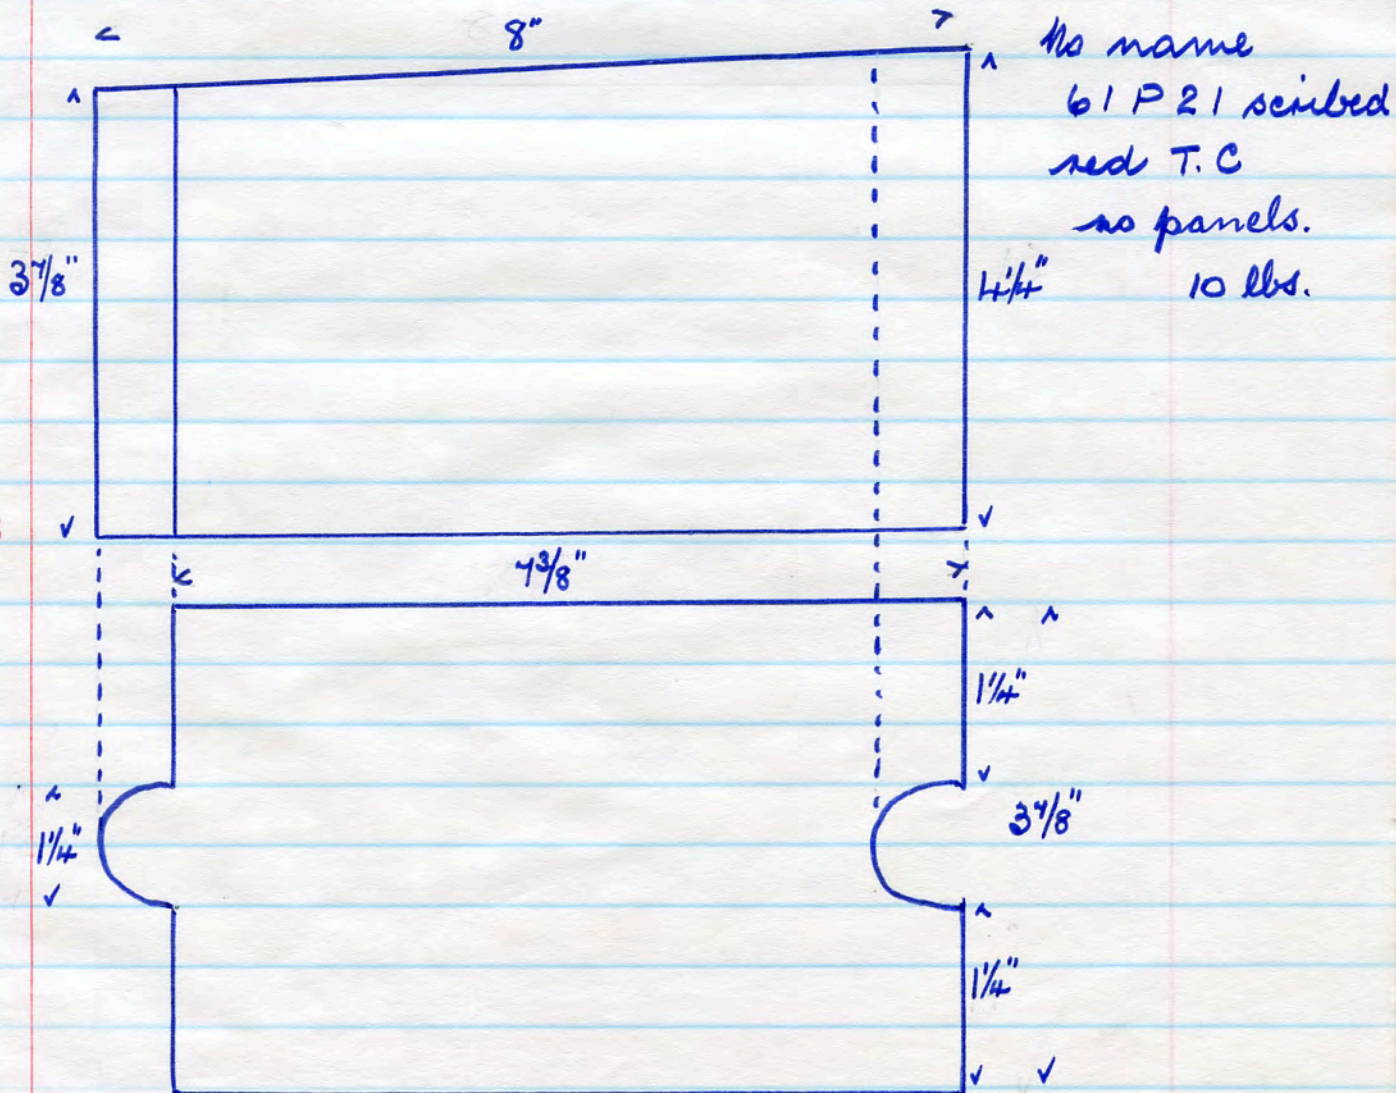 8"
No name
61 P 21 scribed
red T.C
no panels.
10 lbs.
3 7/8"
4 1/4"
7 3/8"
1 1/4"
1 1/4"
3 7/8"
1 1/4"